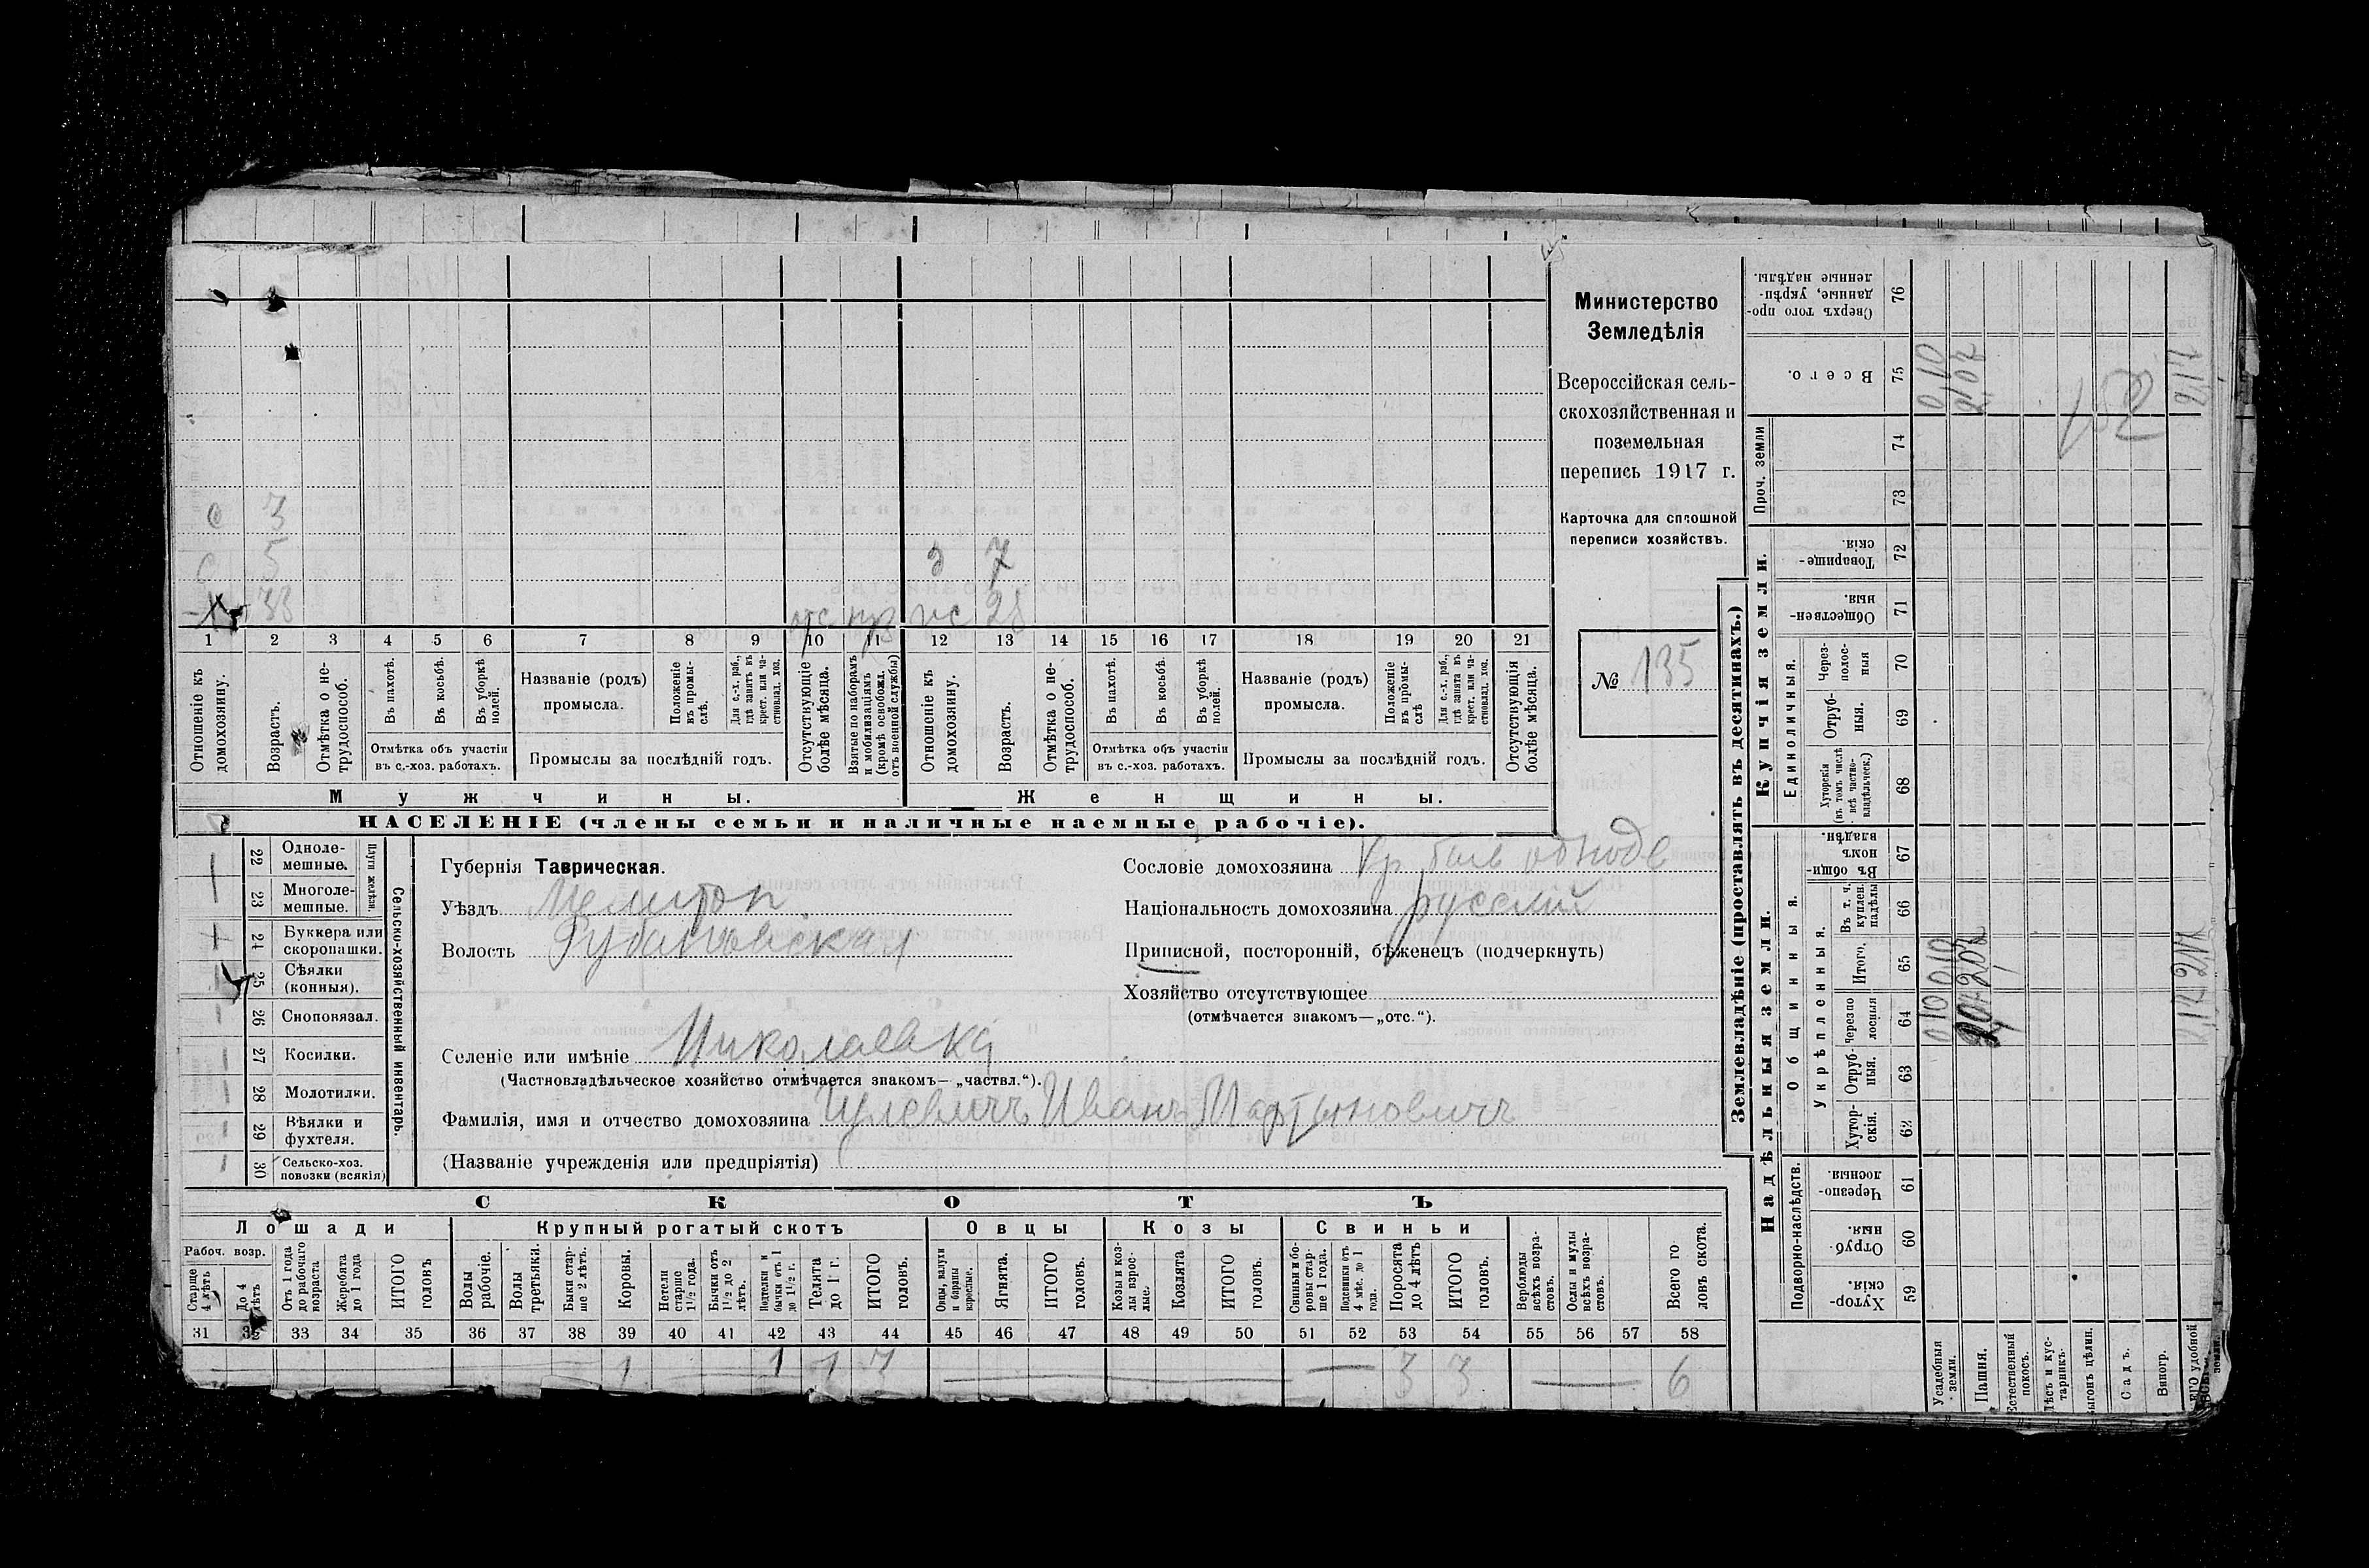 Министерство
Земледѣлія
Всероссійская сель-
скохозяйственная и
поземельная
перепись 1917 г.
Карточка для сплошной
переписи хозяйствъ.
№ 135
с 3
с 5
33
3 7
отс 28
1 2 3 4 5 6 7 8 9 10 11 12 13 14 15 16 17 18 19 20 21
Отношеніе къ домохозяину.
Возрастъ.
Отмѣтка о не-трудоспособ.
Въ пахотѣ.
Въ косьбѣ.
Въ уборкѣ полей.
Отмѣтка объ участіи
въ с.-хоз. работахъ.
Названіе (родъ)
промысла.
Положеніе въ промы-слѣ.
Для с.-х. раб., гдѣ занятъ въ крест. или ча-стновлад. хоз.
Промыслы за послѣдній годъ.
Отсутствующіе болѣе мѣсяца.
Взятые по наборамъ и мобилизаціямъ (кромѣ освобожд. отъ военной службы)
Отношеніе къ домохозяину.
Возрастъ.
Отмѣтка о не-трудоспособ.
Въ пахотѣ.
Въ косьбѣ.
Въ уборкѣ полей.
Отмѣтка объ участіи
въ с.-хоз. работахъ.
Названіе (родъ)
промысла.
Положеніе въ промы-слѣ
Для с.-х. раб., гдѣ занята въ крест. или ча-стновлад. хоз.
Промыслы за послѣдній годъ.
Отсутствующія болѣе мѣсяца.
Мужчины.
Женщины.
НАСЕЛЕНІЕ (члены семьи и наличные наемные рабочіе).
22 Одноле-мешные.
23 Многоле-мешные.
Плуги желѣзн.
24 Буккера или скоропашки.
25 Сѣялки (конныя).
26 Сноповязал.
27 Косилки.
28 Молотилки.
29 Вѣялки и фухтеля.
30 Сельско-хоз. повозки (всякія)
Сельско-хозяйственный инвентарь.
Губернія Таврическая.
Уѣздъ Мелитоп.
Волость Рубановская
Сословіе домохозяина
Національность домохозяина русский
Приписной, посторонній, бѣженецъ (подчеркнуть)
Хозяйство отсутствующее
(отмѣчается знакомъ—„отс.“).
Селеніе или имѣніе Николаевка
(Частновладѣльческое хозяйство отмѣчается знакомъ— „частвл.“).
Фамилія, имя и отчество домохозяина Иванъ Мартыновичъ
(Названіе учрежденія или предпріятія)
СКОТЪ
Лошади
Крупный рогатый скотъ
Овцы
Козы
Свиньи
Рабоч. возр.
Старше 4 лѣтъ
До 4 лѣтъ
Отъ 1 года до рабочаго возраста
Жеребята до 1 года
ИТОГО головъ
Волы рабочіе.
Волы третьяки.
Быки стар-ше 2 лѣтъ.
Коровы.
Нетели старше 1½ года.
Бычки отъ 1½ до 2 лѣтъ.
Подтелки и бычки отъ 1 до 1½ г.
Телята до 1 г.
ИТОГО головъ.
Овцы, валухи и бараны взрослые.
Ягнята.
ИТОГО головъ.
Козы и коз-лы взрос-лые.
Козлята
ИТОГО головъ.
Свиньи и бо-ровы стар-ше 1 года.
Подсвинки отъ 4 мѣс. до 1 года.
Поросята до 4 лѣтъ
ИТОГО головъ.
Верблюды всѣхъ возра-стовъ.
Ослы и мулы всѣхъ возра-стовъ.
Всего го-ловъ скота.
31 32 33 34 35 36 37 38 39 40 41 42 43 44 45 46 47 48 49 50 51 52 53 54 55 56 57 58
1 1 1 3 3 3 6
Землевладѣніе (проставлять въ десятинахъ.)
Купчія земли.
Надѣльныя земли.
Проч. земли
Единоличныя.
Общинныя.
Укрѣпленныя.
Подворно-наслѣдств.
76 Сверхъ того про-данные, укрѣп-ленные надѣлы.
75 Всего.
74
73
72 Товарище-скія.
71 Обществен-ныя.
70 Через-полос-ныя
69 Отруб-ныя.
68 Хуторскія (въ томъ числѣ всѣ частно-владѣльческ.)
67 Въ общин-номъ владѣн.
66 Въ т. ч. куплен. надѣлы
65 Итого.
64 Черезпо-лосныя
63 Отруб-ныя.
62 Хутор-скія.
61 Черезпо-лосныя.
60 Отруб-ныя.
59 Хутор-скія.
Усадебныя земли.
Пашня.
Естественный покосъ.
Лѣсъ и кус-тарникъ.
Выгонъ цѣлин.
Садъ.
Виногр.